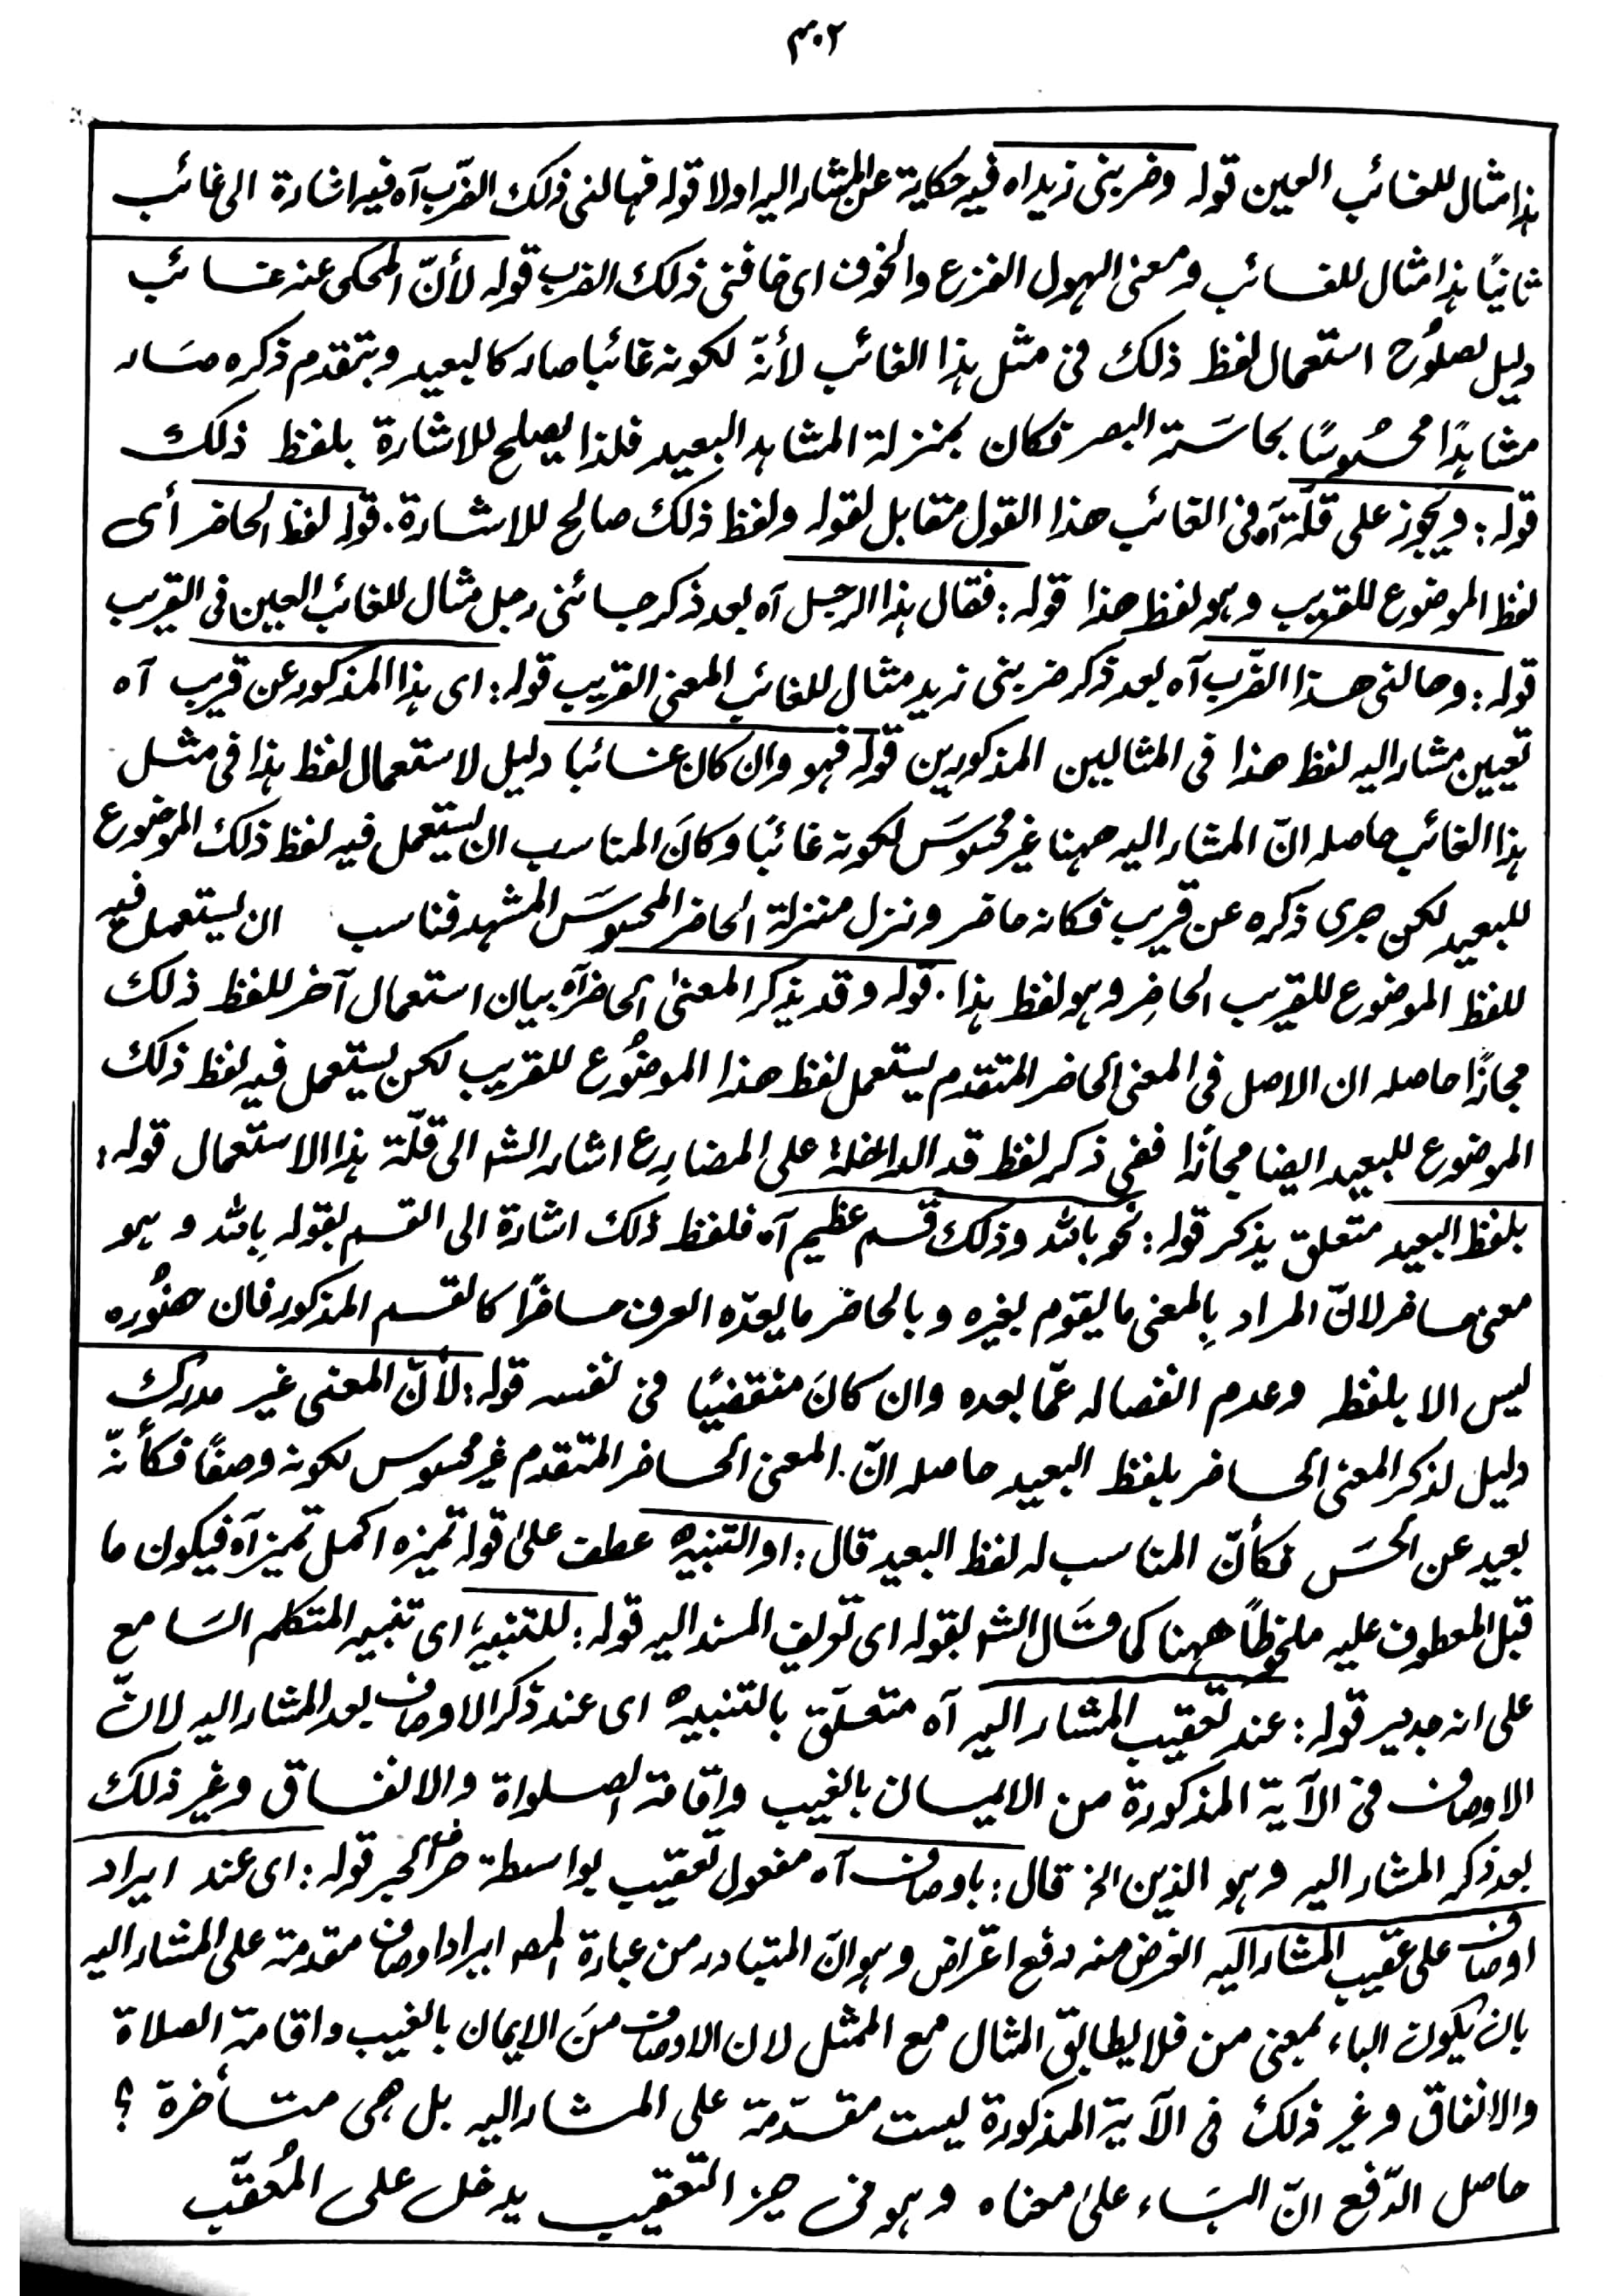 ٣٠٢
ہذا مثال للغائب العین قولہ وضربنی زید اہ فیہ حکایۃ عن المشار الیہ اولا قولہ فہالنی ذلک الضرب آہ فیہ اشارۃ الی غائب
ثانیًا ہذا مثال للغائب ومعنی الہول الفزع والخوف ای خافنی ذلک الضرب قولہ لأنّ المحکی عنہ غائب
دلیل لصلُوح استعمال لفظ ذلک فی مثل ہذا الغائب لأنّہ لکونہ غائبا صار کالبعید وبتقدم ذکرہ صَار
مشاہدًا محسُوسًا بحاسَۃ البصر فکان بمنزلۃ المشاہد البعید فلذا یصلح للاشارۃ بلفظ ذلک
قولہ: ویجوز علی قلّۃ آہ فی الغائب ھذا القول متقابل لقولہ ولفظ ذلک صالح للاشارۃ. قولہ لفظ الحاضر أی
لفظ الموضوع للقریب وہو لفظ ھذا قولہ: فقال ہذا الرجل آہ بعد ذکر جائنی رجل مثال للغائب العین فی القریب
قولہ: وھالنی ھذا الضّرب آہ بعد ذکر ضربنی زید مثال للغائب المعنی القریب قولہ: ای ہذا المذکور عن قریب آہ
تعیین مشار الیہ لفظ ھذا فی المثالین المذکورین قولہ فہو وان کان غائبا دلیل لاستعمال لفظ ہذا فی مثل
ہذا الغائب حاصلہ انّ المشار الیہ ھہنا غیر محسوسَ لکونہ غائبًا وکانَ المناسب ان یستعمل فیہ لفظ ذلک الموضوع
للبعید لکن جری ذکرہ عن قریب فکانہ حاضر ونزل منزلۃ الحاضر المحسوسَ المشہد فناسب ان یستعمل فیہ
للفظ الموضوع للقریب الحاضِر وہو لفظ ہذا. قولہ وقد یذکر المعنیٰ الحاضر آہ بیان استعمال آخر للفظ ذلک
مجازًا حاصلہ ان الاصل فی المعنی الحاضر المتقدم یستعمل لفظ ھذا الموضُوع للقریب لکن یستعمل فیہ لفظ ذلک
الموضوع للبعید ایضا مجازًا ففی ذکر لفظ قد الداخلۃ علی المضارِع اشار الشہ الی قلّۃ ہذا الاستعمال قولہ:
بلفظ البعید متعلق یذکر قولہ: نحو باللہ وذلک قسم عظیم آہ فلفظ ذلک اشارۃ الی القسم بقولہ بِاللہ وہو
معنی حاضر لانّ المراد بِالمعنی ما یقوم بغیرہ وبالحاضر ما یعدّہ العرف حاضرًا کالقسم المذکور فان حضُورہ
لیس الا بلفظہ وعدم انفصالہ عمّا بعدہ وان کانَ منقضیًا فی نفسہ قولہ: لأنّ المعنی غیر مدرک
دلیل لذکر المعنی الحاضر بلفظ البعید حاصلہ انّ المعنی الحاضر المتقدم غیر محسوس لکونہ وصفًا فکأنّہ
بعید عن الحسَ فکأنّ المناسب لہ لفظ البعید قال: او التنبیہ عطف علیٰ قولہ تمیزہ اکمل تمیز آہ فیکون ما
قبل المعطوف علیہ ملحوظًا ھہنا کما قَال الشہ بقولہ ای تعریف المسند الیہ قولہ: للتنبیہ، ای تنبیہ المتکلم السَامع
علی انہ جدیر قولہ: عند تعقیب المشار الیہ آہ متعلّق بالتنبیہ ای عند ذکر الاوصاف بعد المشار الیہ لانّ
الاوصاف فی الآیۃ المذکورۃ من الایمان بالغیب واقامۃ الصلواۃ والانفاق وغیر ذلک
بعد ذکر المشار الیہ وہو الذین الخ قال: باوصاف آہ مفعول تعقیب بواسطۃ حرف الجر قولہ: ای عند ایراد
اوصاف علی عقیب المشار الیہ الغرض منہ دفع اعتراض وہو انّ المتبادر من عبارۃ المصہ ایراد اوصاف مقدمۃ علی المشار الیہ
بان یکون الباء بمعنی من فلا یطابق المثال مع الممثل لان الاوصاف منَ الایمان بالغیب واقامۃ الصلاۃ
والانفاق وغیر ذلک فی الآیۃ المذکورۃ لیست مقدّمۃ علی المشار الیہ بل ھی متأخرۃ ؟
حاصل الدّفع انّ البَاء علیٰ معناہ وہو فی حیز التّعقیب یدخل علی المُعقّب